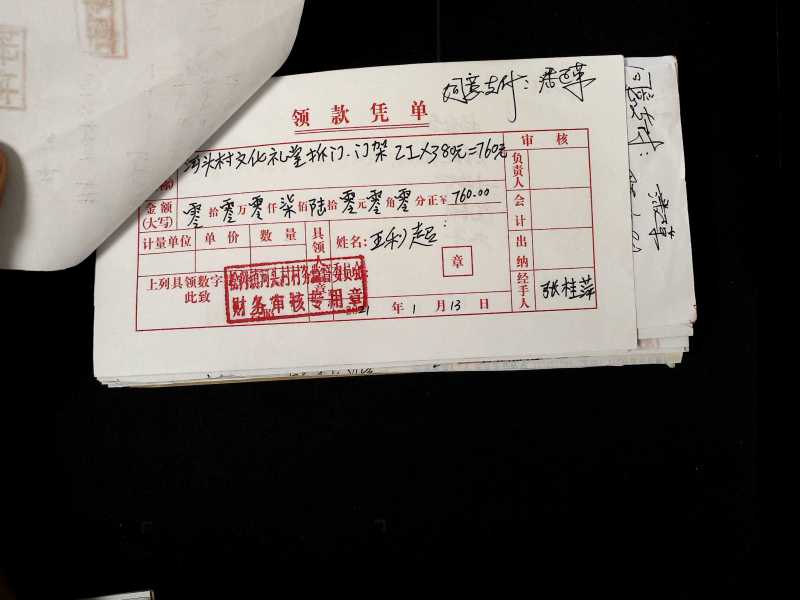 同意支付：
领款凭单
河头村文化礼堂拆门、门架 2工×380元=760元
审核
负责人
金额(大写) 零拾零万零仟柒佰陆拾零元零角零分正￥760.00
会计
计量单位 单价 数量 具领人盖章 姓名：王利超
章
出纳
上列具领数字
此致
河头村村务监督委员会
财务审核专用章
经手人 张桂萍
2021年1月13日